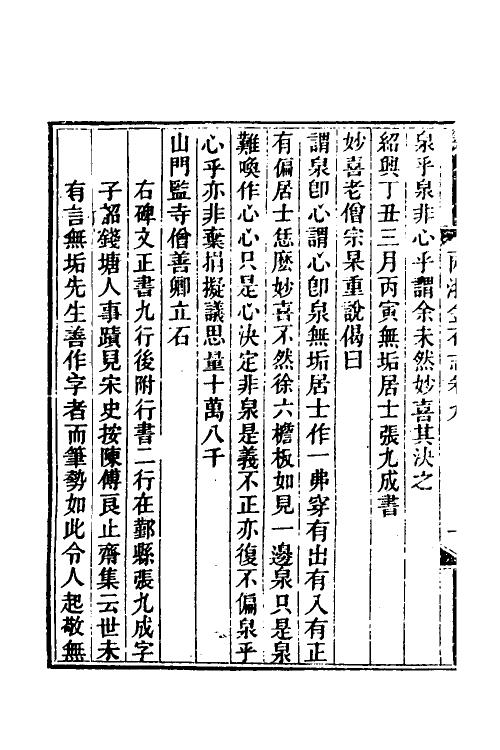 泉乎泉非心乎謂余未然妙喜其決之
紹興丁丑三月丙寅無垢居士張九成書
妙喜老僧宗杲重說偈曰
謂泉卽心謂心卽泉無垢居士作一弗穿有出有入有正
有偏居士恁麽妙喜不然徐六檐板如見一邊泉只是泉
難喚作心心只是心決定非泉是義不正亦復不偏泉乎
心乎亦非棄捐擬議思量十萬八千
山門監寺僧善卿立石
右碑文正書九行後附行書二行在鄞縣張九成字
子韶錢塘人事蹟見宋史按陳傅良止齋集云世未
有言無垢先生善作字者而筆勢如此令人起敬無